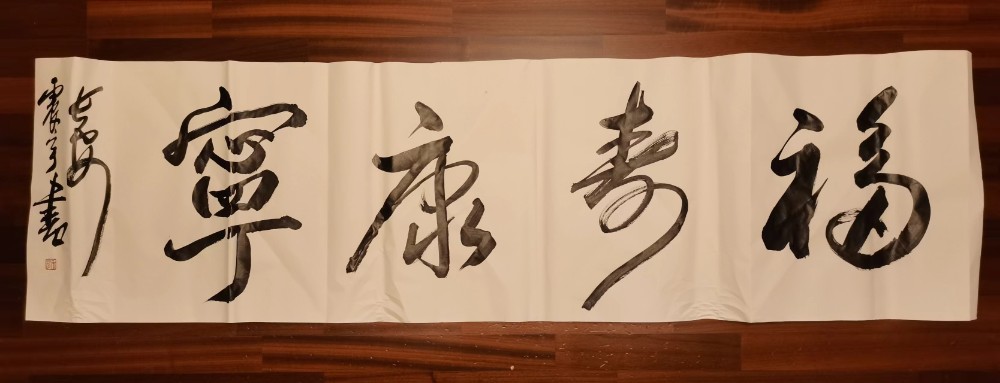 福壽康寧
震宇書